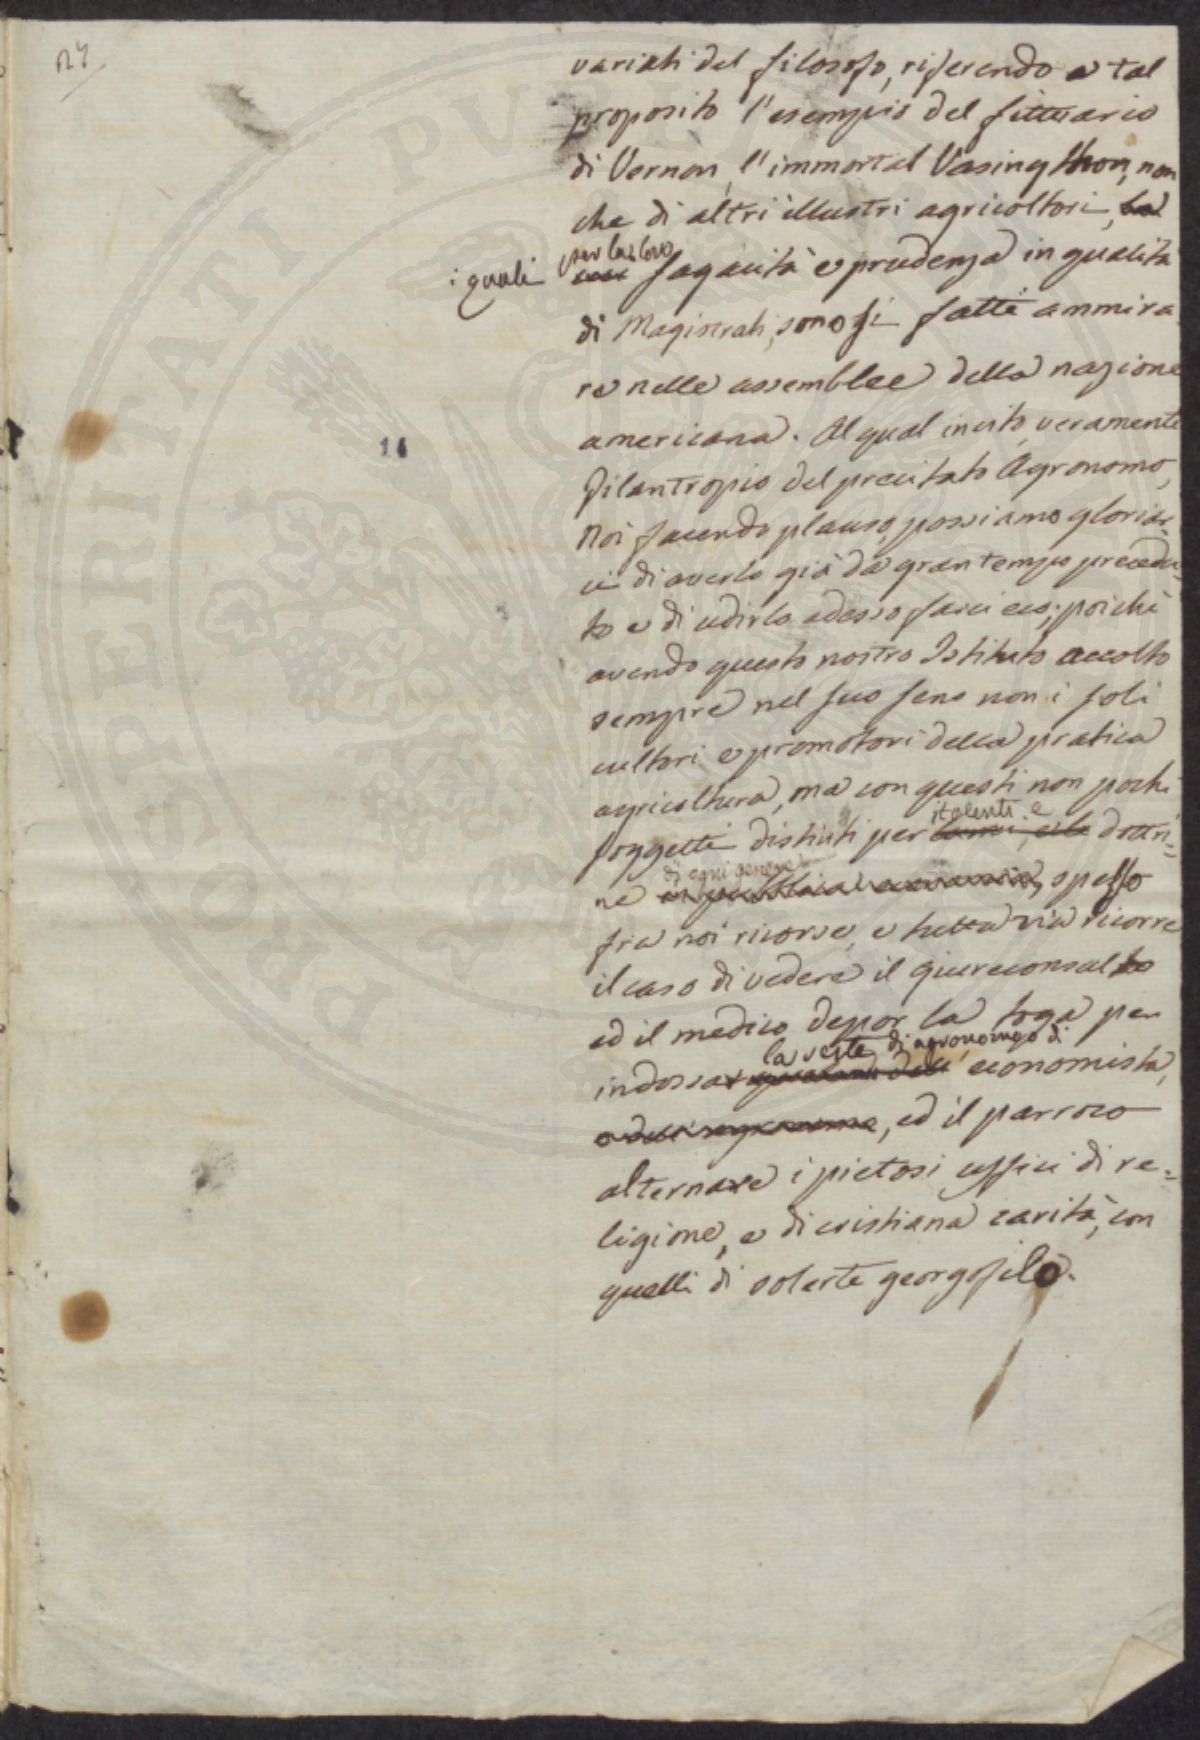 124
variati del filosofo, riferendo a tal
proposito l'esempio del fittuario
di Vernon, l'immortal Vasingthon, non
che di altri illustri agricoltori, la
i quali per la loro sagacità e prudenza in qualità
di Magistrati, sonosi fatti ammira
re nelle assemblee della nazione
americana. Al qual invito veramente
filantropio del precitato Agronomo,
Noi facendo plauso, possiamo gloriar-
ci di averlo già da gran tempo precedu-
to e di udirlo adesso farci eco; poichè
avendo questo nostro Istituto accolto
sempre nel suo seno non i soli
cultori e promotori della pratica
agricoltura, ma con questi non pochi
soggetti distinti per i talenti e dottri-
ne di ogni genere, spesso
fra noi ricorse, e tutta via ricorre
il caso di vedere il giureconsulto
ed il medico depor la toga per
indossar la veste di agronomo e di economista,
ed il parroco
alternare i pietosi uffici di re-
ligione, e di cristiana carità, con
quelli di solerte georgofilo.
14
PROSPERITATI PUBLICAE